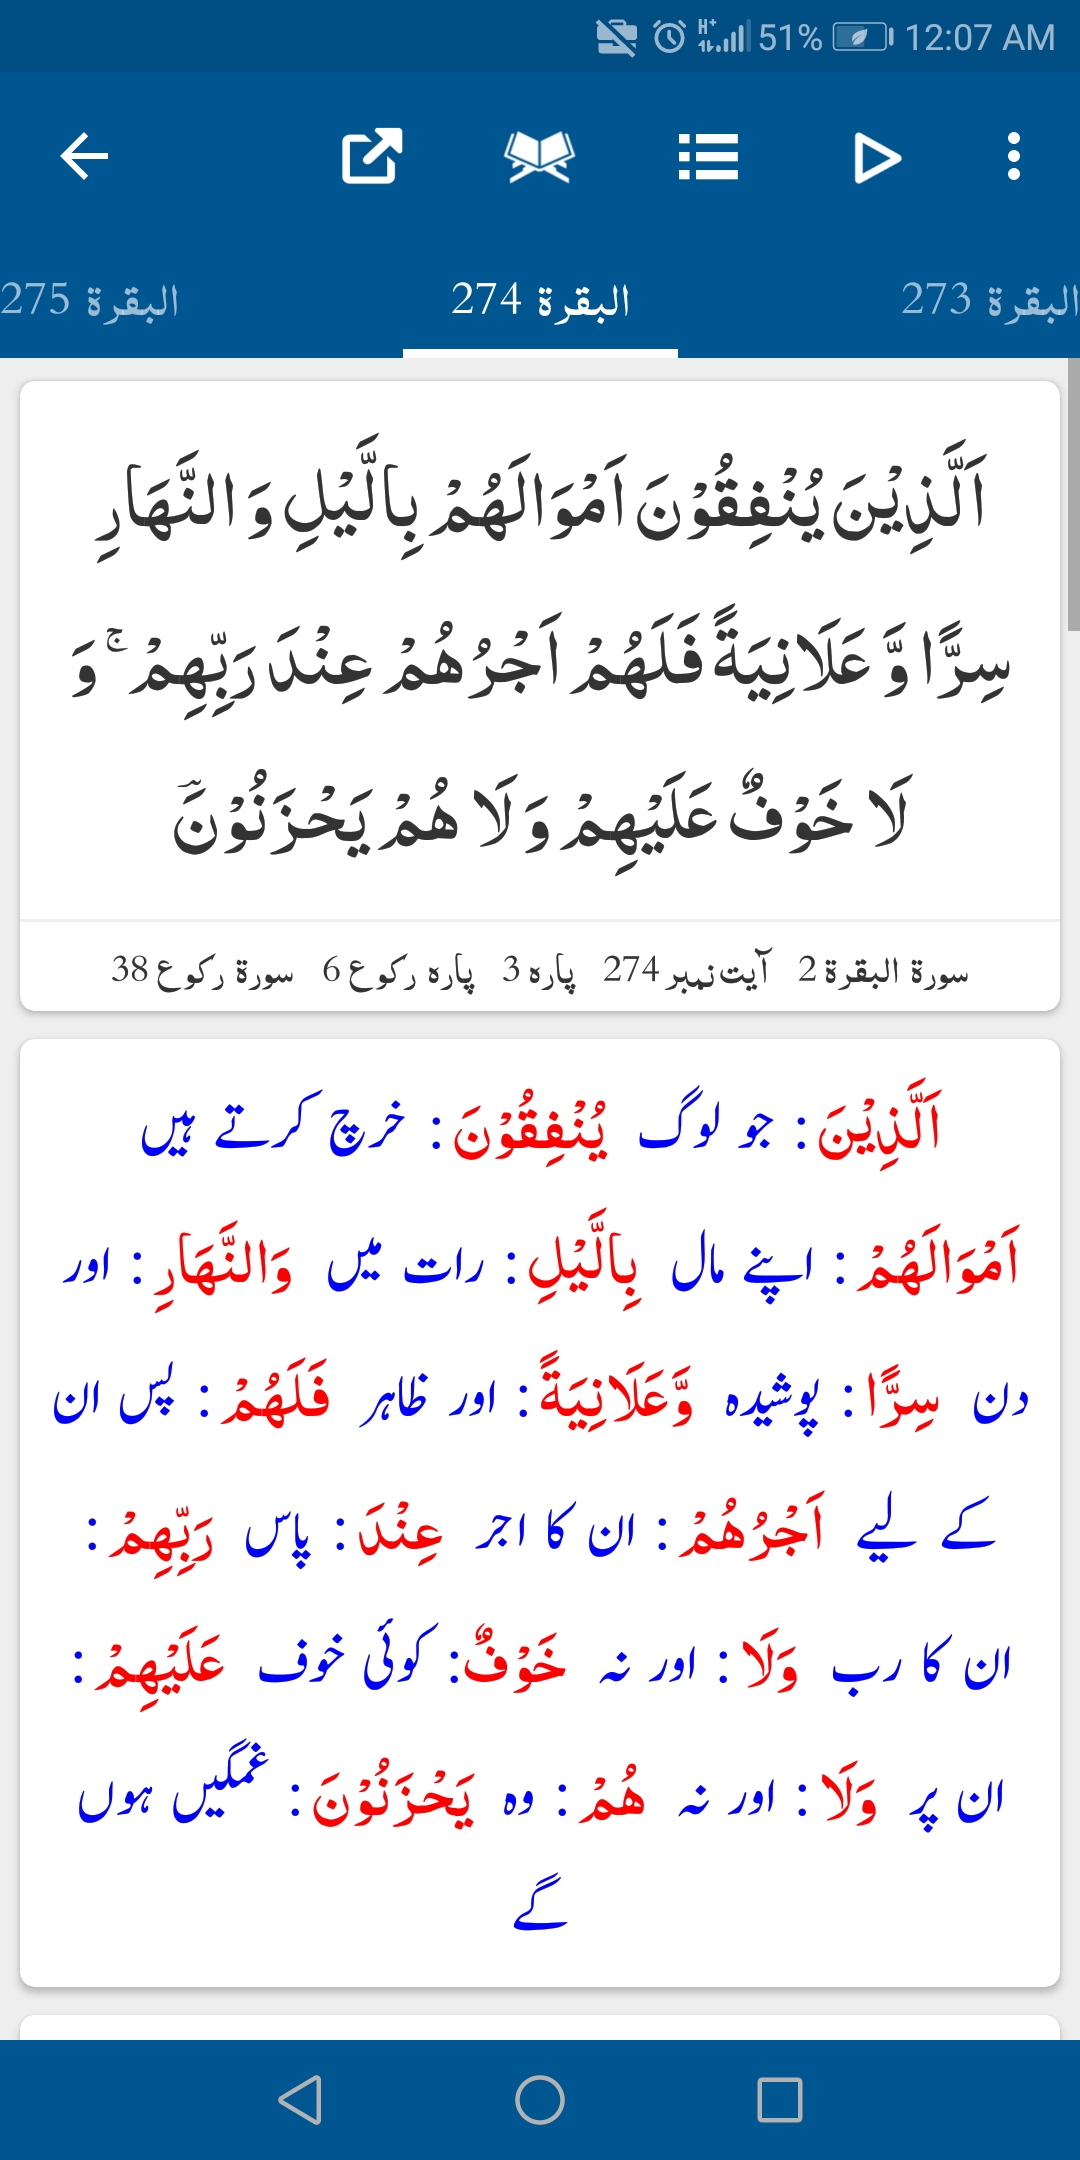 51% 12:07 AM
البقرة 273
البقرة 274
البقرة 275
اَلَّذِیْنَ یُنْفِقُوْنَ اَمْوَالَهُمْ بِالَّیْلِ وَ النَّهَارِ
سِرًّا وَّ عَلَانِیَةً فَلَهُمْ اَجْرُهُمْ عِنْدَ رَبِّهِمْ ۚ وَ
لَا خَوْفٌ عَلَیْهِمْ وَ لَا هُمْ یَحْزَنُوْنَؔ
سورۃ البقرۃ 2 آیت نمبر 274 پارہ 3 پارہ رکوع 6 سورۃ رکوع 38
اَلَّذِيْنَ : جو لوگ يُنْفِقُوْنَ : خرچ کرتے ہیں
اَمْوَالَھُمْ : اپنے مال بِالَّيْلِ : رات میں وَالنَّهَارِ : اور
دن سِرًّا : پوشیدہ وَّعَلَانِيَةً : اور ظاہر فَلَھُمْ : پس ان
کے لیے اَجْرُھُمْ : ان کا اجر عِنْدَ : پاس رَبِّهِمْ :
ان کا رب وَلَا : اور نہ خَوْفٌ : کوئی خوف عَلَيْهِمْ :
ان پر وَلَا : اور نہ ھُمْ : وہ يَحْزَنُوْنَ : غمگیں ہوں
گے